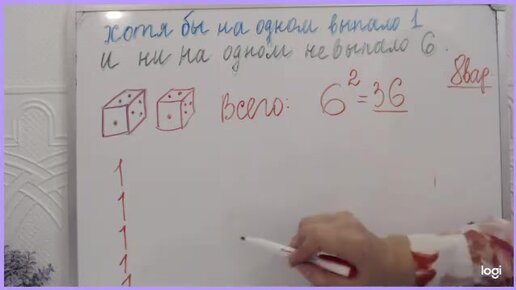 хотя бы на одном выпало 1
и ни на одном не выпало 6.
8вар.
Всего: 6² = 36
1
1
1
1
1
logi